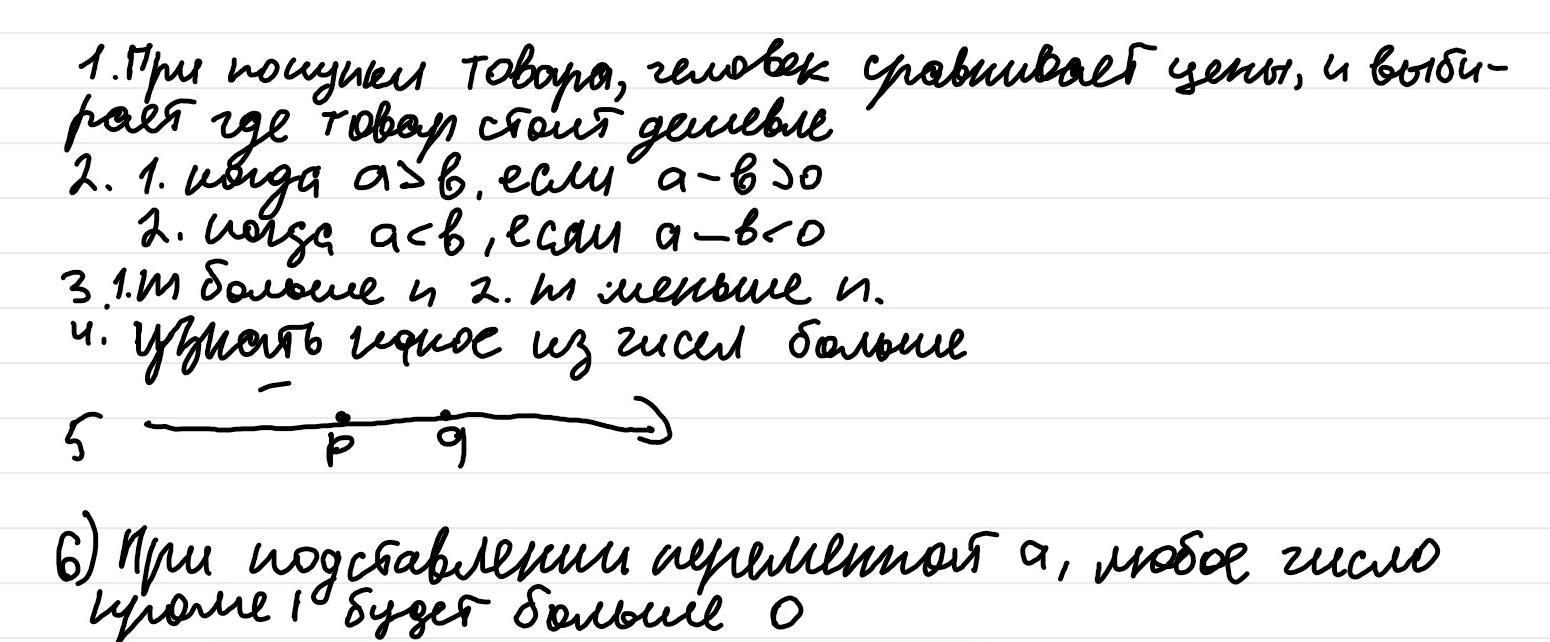 1. При покупки товара, человек сравнивает цены, и выби-
рает где товар стоит дешевле
2. 1. когда a>b, если a-b>0
2. когда a<b, если a-b<0
3. 1. m больше n 2. m меньше n.
4. Узнать какое из чисел больше
5
p q
6) При подставлении переменной a, любое число
кроме 1 будет больше 0